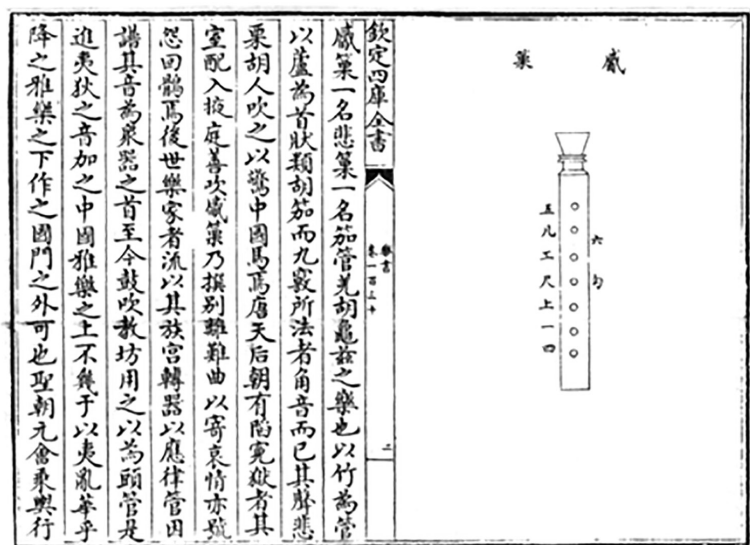 觱篥
六勾
五凡工尺上一四
欽定四庫全書
樂書
卷一百三十
二
觱篥一名悲篥一名笳管羌胡龜茲之樂也以竹為管
以蘆為首狀類胡笳而九竅所法者角音而已其聲悲
栗胡人吹之以驚中國馬焉唐天后朝有陷冤獄者其
室配入掖庭善吹觱篥乃撰别離難曲以寄哀情亦號
怨回鶻焉後世樂家者流以其族宮轉器以應律管因
譜其音為衆器之首至今鼓吹教坊用之以為頭管是
進夷狄之音加之中國雅樂之上不幾于以夷亂華乎
降之雅樂之下作之國門之外可也聖朝元會乗輿行